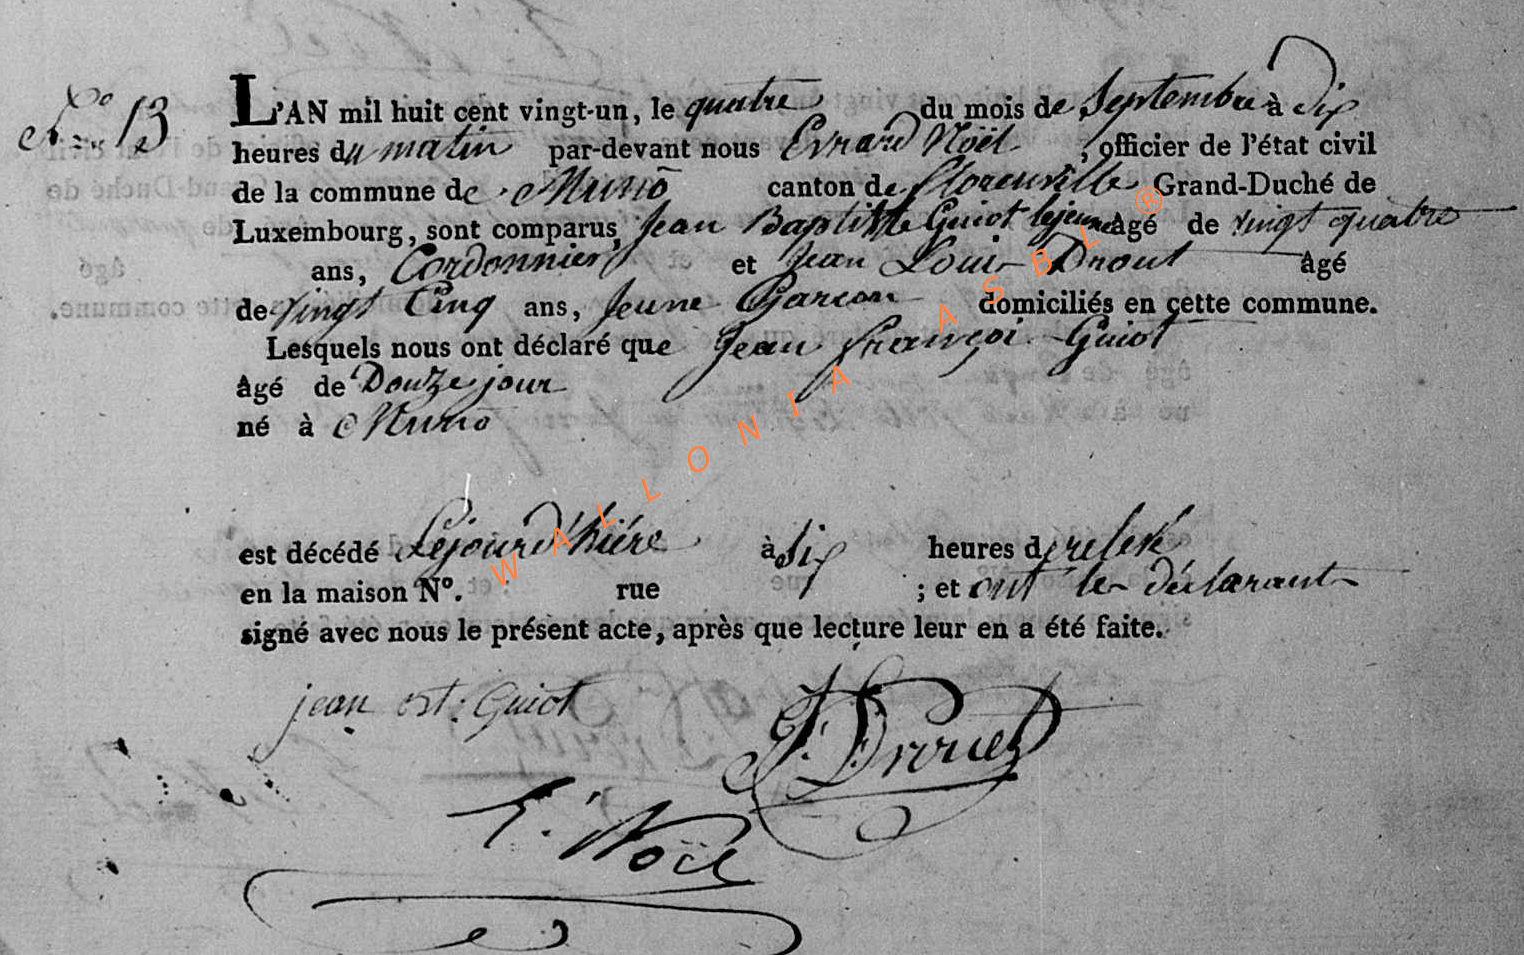 N.° 13
L'AN mil huit cent vingt-un, le quatre du mois de Septembre à dix
heures du matin par-devant nous Evrard Noël, officier de l'état civil
de la commune de Muno canton de florenville Grand-Duché de
Luxembourg, sont comparus, Jean Baptiste Guiot lejeune âgé de vingt quatre
ans, Cordonnier et Jean Loui Drout âgé
de vingt Cinq ans, Jeune Garcon domiciliés en cette commune.
Lesquels nous ont déclaré que Jean françoi Guiot
âgé de Douze jour
né à Muno
est décédé Lejourd'hiére à Six heures d
en la maison N°. rue ; et ont les déclarant
signé avec nous le présent acte, après que lecture leur en a été faite.
jean bt: Guiot
J: L: Drouet
E. Noël
WALLONIA ASBL ®